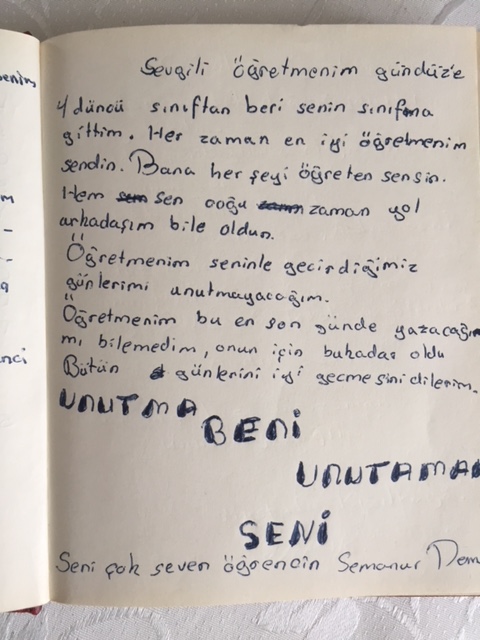 Sevgili öğretmenim gündüz'e
4 düncü sınıftan beri senin sınıfına
gittim. Her zaman en iyi öğretmenim
sendin. Bana her şeyi öğreten sensin.
Hem sen coğu zaman yol
arkadaşım bile oldun.
Öğretmenim seninle gecirdiğimiz
günlerimi unutmayacağım.
Öğretmenim bu en son günde yazacağı
mı bilemedim, onun için bukadar oldu
Bütün günlerini iyi gecmesini dilerim.
UNUTMA
BENİ
UNUTAMAM
SENİ
Seni çok seven öğrencin Semanur Dem
enim
m
-
-
a
nci